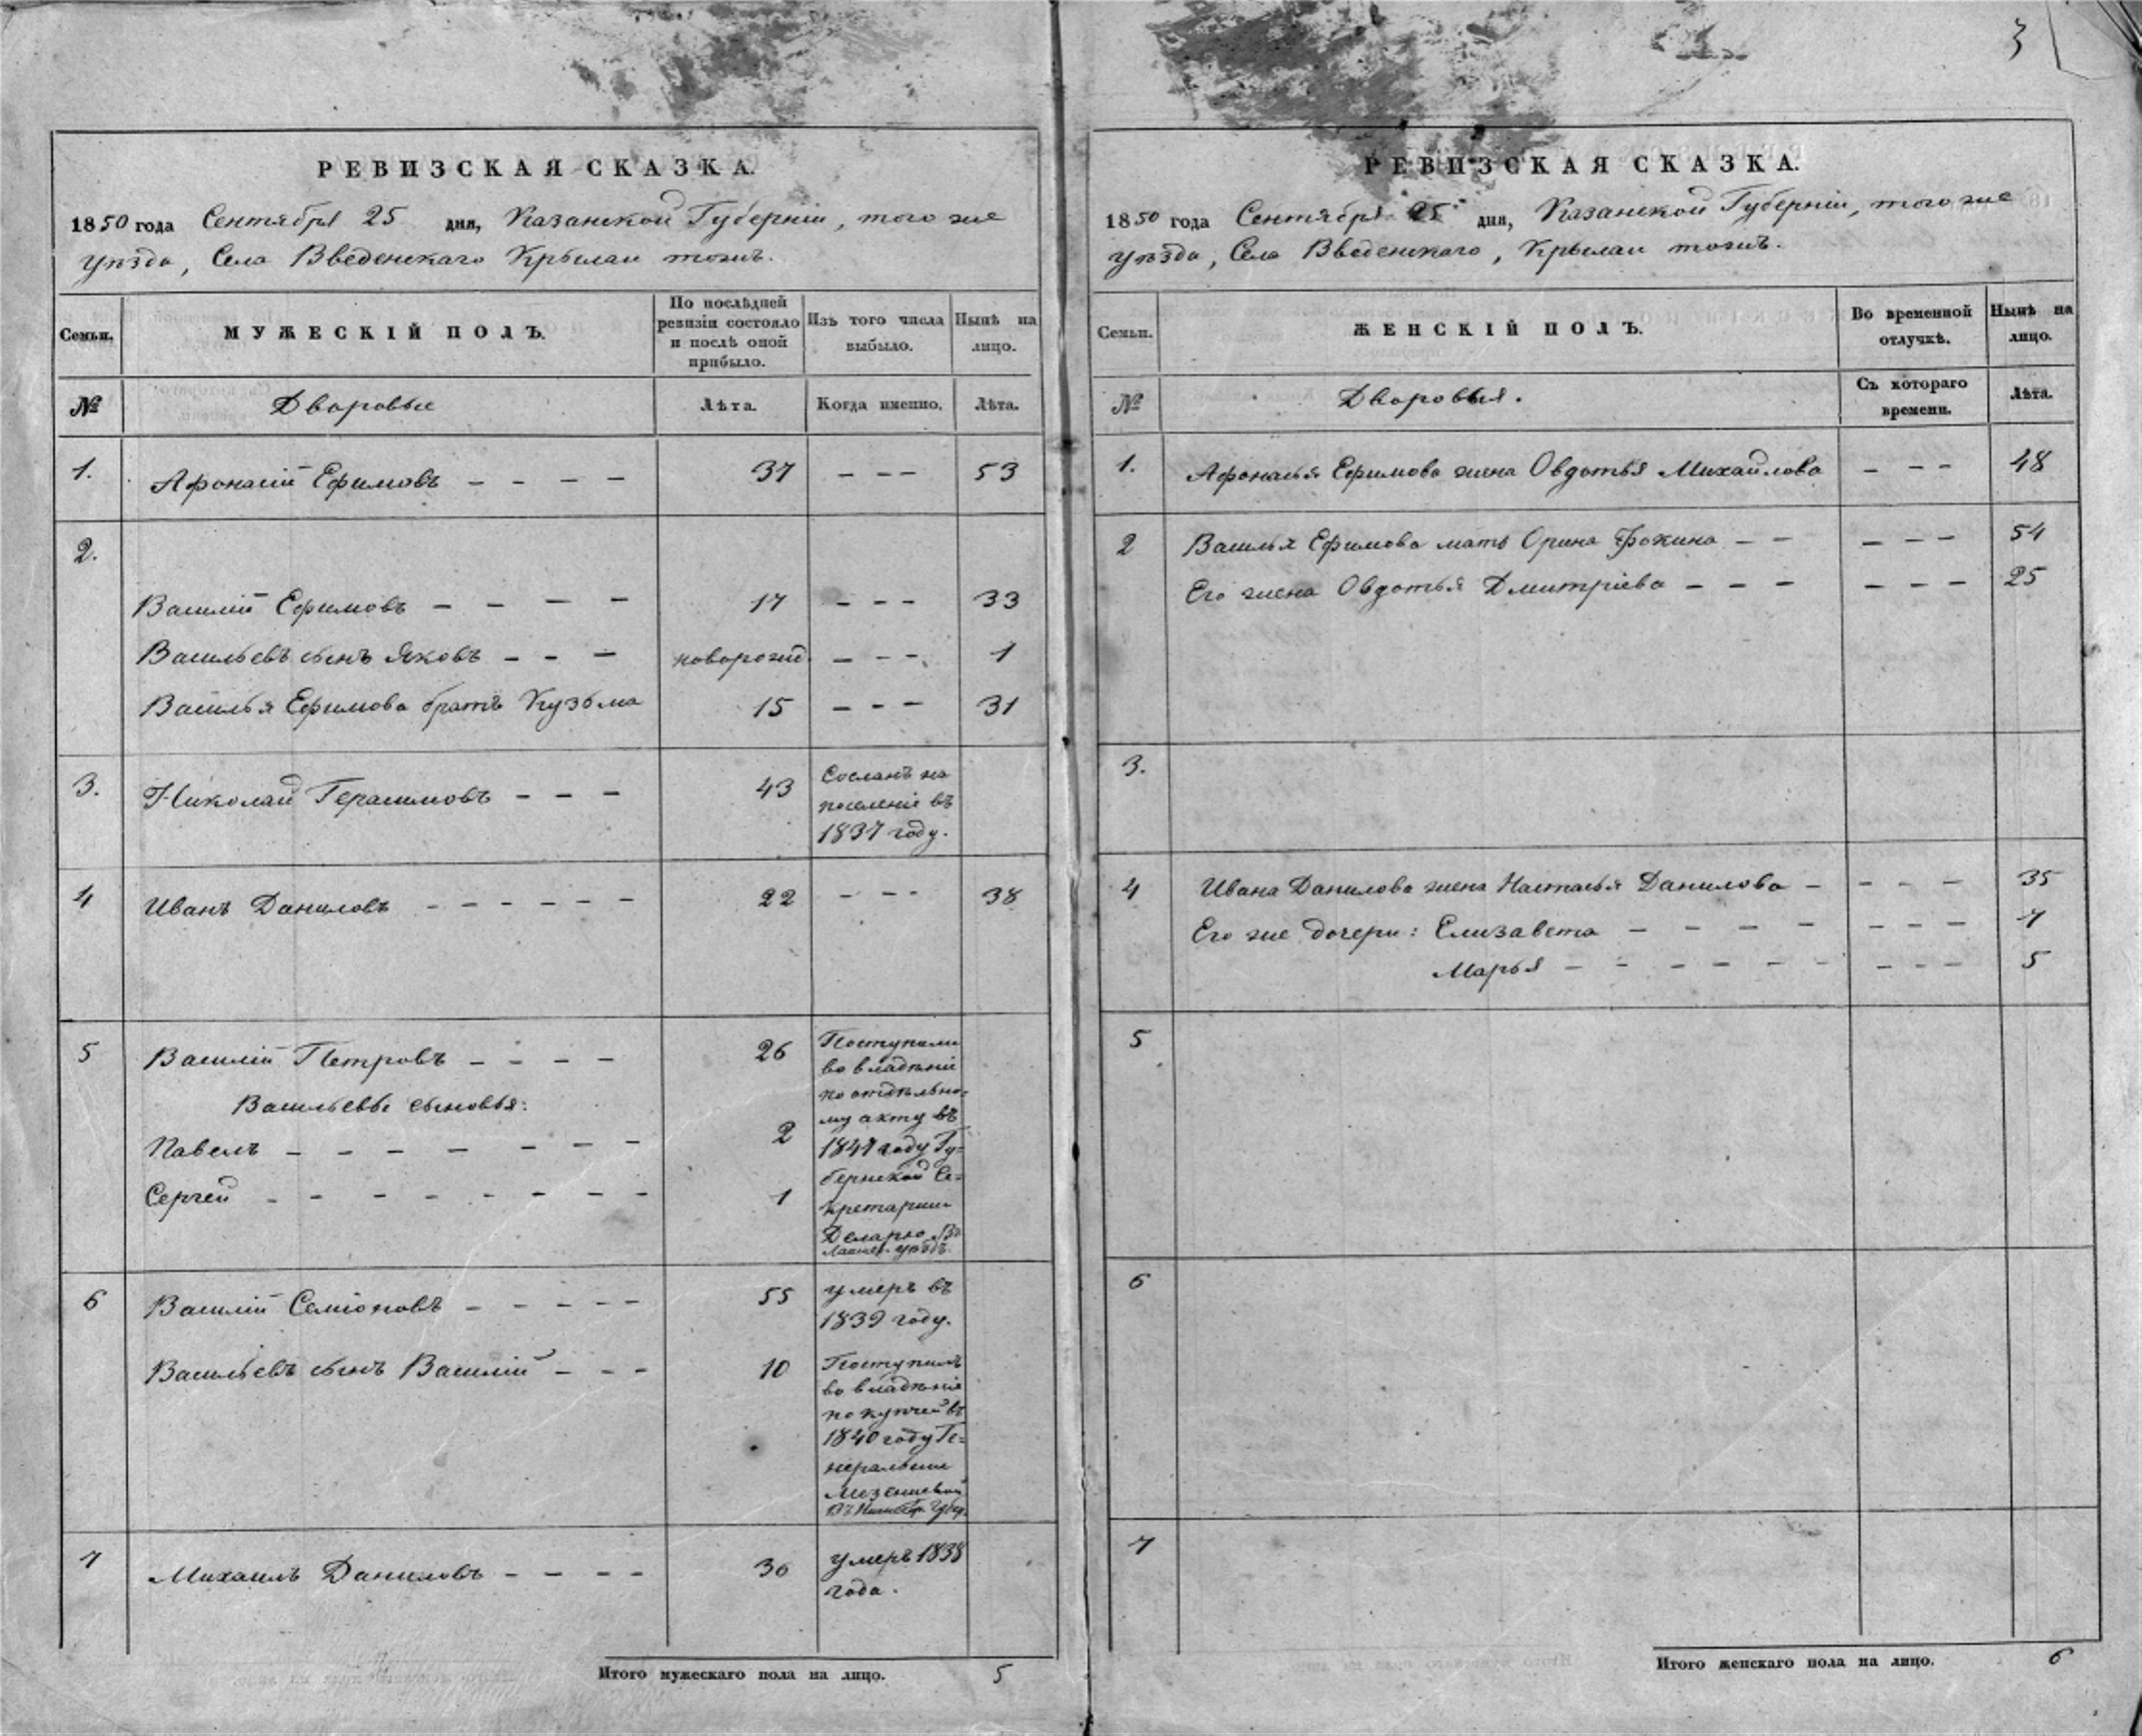 3
РЕВИЗСКАЯ СКАЗКА.
1850 года Сентября 25 дня, Казанской Губерніи, того же
уѣзда, Села Введенскаго Крылаи тожъ.
Семьи.
МУЖЕСКІЙ ПОЛЪ.
По послѣдней
ревизіи состояло
и послѣ оной
прибыло.
Изъ того числа
выбыло.
Нынѣ на
лицо.
№
Дворовые
Лѣта.
Когда именно.
Лѣта.
1. Афонасій Ефимовъ - - - - 37 - - - 53
2.
Василій Ефимовъ - - - - 17 - - - 33
Васильевъ сынъ Яковъ - - - новорожд. - - - 1
Василья Ефимова братъ Кузьма 15 - - - 31
3. Николай Герасимовъ - - - 43
Сосланъ на
поселеніе въ
1837 году.
4 Иванъ Даниловъ - - - - - - 22 - - - 38
5 Василій Петровъ - - - - 26
Васильевы сыновья:
Павелъ - - - - - - - 2
Сергей - - - - - - - - 1
Поступили
во владѣніе
по отдѣльно-
му акту въ
1847 году Гу-
бернской Се-
кретарши
Деларю. Въ
Лаишев. уѣздъ.
6 Василій Семіоновъ - - - - - 55
умеръ въ
1839 году.
Васильевъ сынъ Василій - - - 10
Поступилъ
во владѣніе
по купчей въ
1840 году Ге-
неральши
7 Михаилъ Даниловъ - - - - 36
умеръ 1838
года.
Итого мужескаго пола на лицо. 5
РЕВИЗСКАЯ СКАЗКА.
1850 года Сентября 25 дня, Казанской Губерніи, того же
уѣзда, Села Введенскаго, Крылаи тожъ.
Семьи.
ЖЕНСКІЙ ПОЛЪ.
Во временной
отлучкѣ.
Нынѣ на
лицо.
№
Дворовыя.
Съ котораго
времени.
Лѣта.
1. Афонасья Ефимова жена Овдотья Михайлова - - - 48
2 Василья Ефимова мать Орина Фокина - - - - - 54
Его жена Овдотья Дмитріева - - - - - - 25
3.
4 Ивана Данилова жена Настасья Данилова - - - - 35
Его же дочери: Елизавета - - - - - - - 7
Марья - - - - - - - - - 5
5
6
7
Итого женскаго пола на лицо. 6